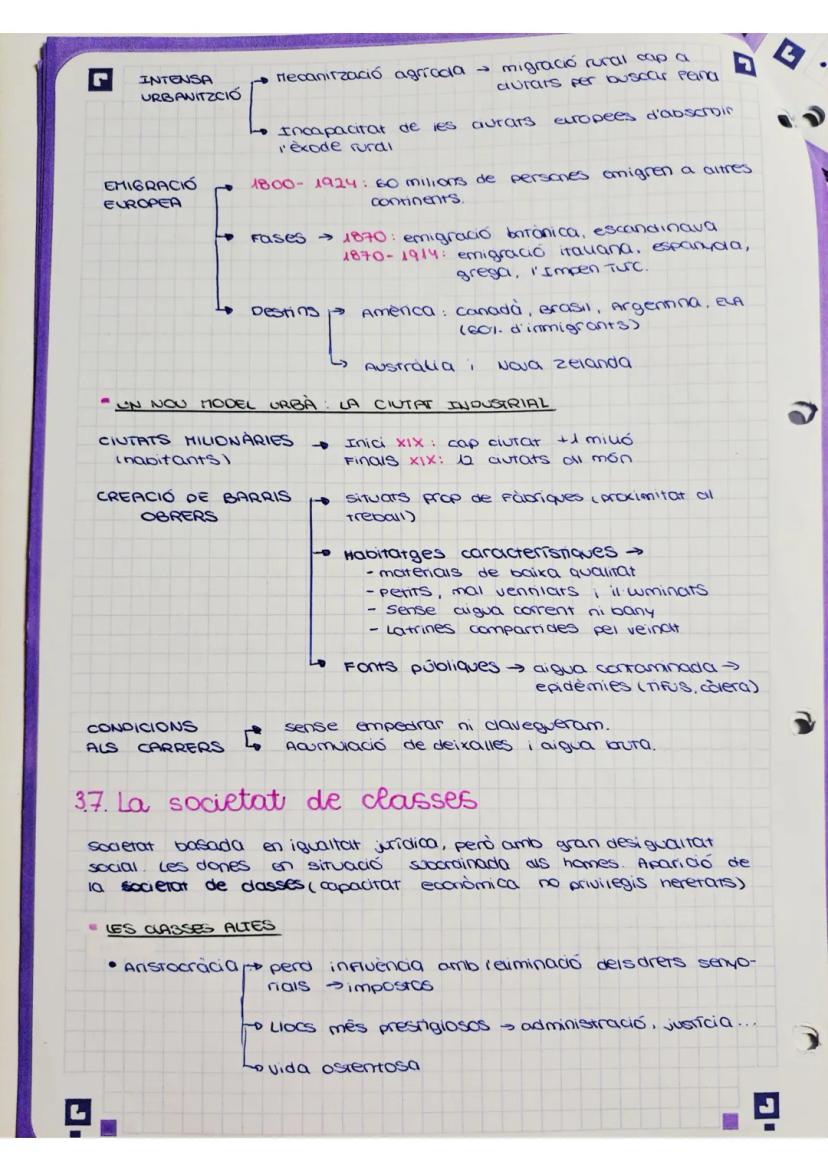 INTENSA → Mecanització agrícola → migració rural cap a
URBANITZCIÓ ciutats per buscar feina
→ Incapacitat de les ciutats europees d'absorbir
l'èxode rural
EMIGRACIÓ → 1800-1924: 60 milions de persones emigren a altres
EUROPEA continents.
→ Fases → 1870: emigració britànica, escandinava
1870-1914: emigració italiana, espanyola,
grega, l'Imperi Turc.
→ Destins → Amèrica: Canadà, Brasil, Argentina, EUA
(60% d'inmigrants)
→ Austràlia i Nova Zelanda
UN NOU MODEL URBÀ: LA CIUTAT INDUSTRIAL
CIUTATS MILIONÀRIES → Inici XIX: cap ciutat +1 milió
(habitants) Finals XIX: 12 ciutats al món
CREACIÓ DE BARRIS → situats prop de fàbriques (proximitat al
OBRERS treball)
→ Habitatges característiques →
- materials de baixa qualitat
- petits, mal ventilats i il·luminats
- Sense aigua corrent ni bany
- Latrines compartides pel veïnat
→ Fonts públiques → aigua contaminada →
epidèmies (tifus, còlera)
CONDICIONS → sense empedrar ni clavegueram.
ALS CARRERS → Acumulació de deixalles i aigua bruta.
3.7. La societat de classes
Societat basada en igualtat jurídica, però amb gran desigualtat
social. Les dones en situació subordinada als homes. Aparició de
la societat de classes (capacitat econòmica no privilegis heretats)
LES CLASSES ALTES
• Aristocràcia → perd influència amb l'eliminació dels drets senyo-
rials → impostos
→ Llocs més prestigiosos → administració, justícia...
→ vida ostentosa